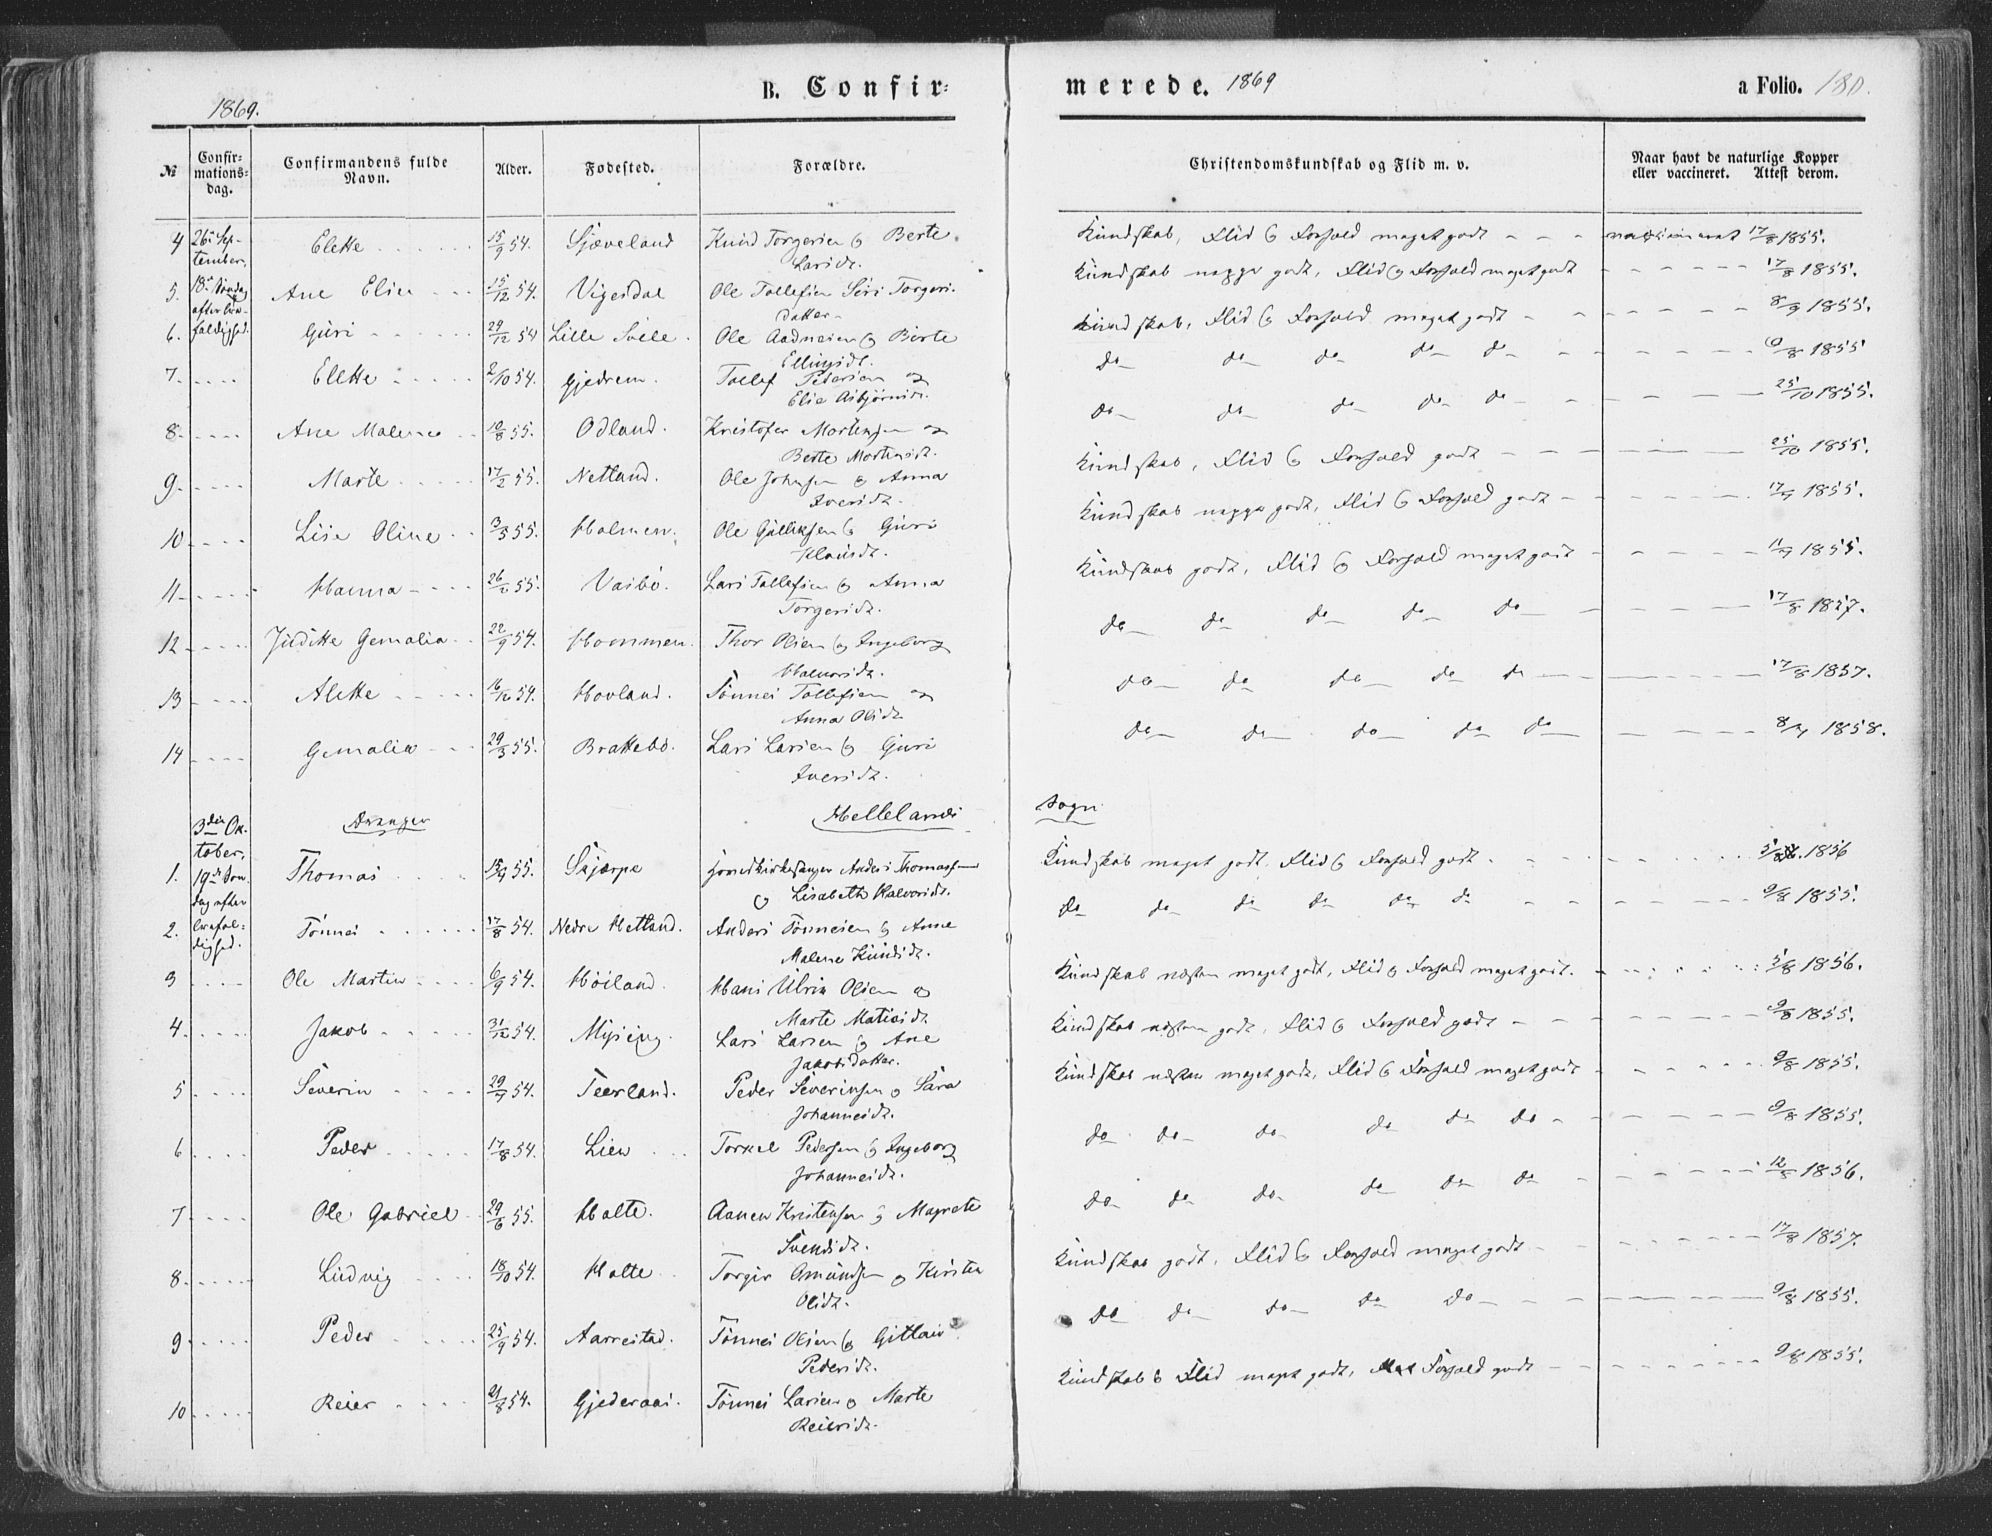 B. Confir=
merede. 1869
a Folio. 180.
1869.
№ Confir=mations=dag. Confirmandens fulde Navn. Alder. Fødested. Forældre. Christendomskundskab og Flid m. v. Naar havt de naturlige Kopper eller vaccineret. Attest derom.
4 26de Sep- Elette 15/9 54. Sjæveland Knud Torgersen & Berte Kundskab, Flid & Forhold meget godt vaccineret 17/8 1855.
tember, Larsdt.
5. 18de Søndag Ane Elise 15/12 54. Vigesdal Ole Tollefsen Siri Torgers- Kundskab neppe godt, Flid & Forhold meget godt 17/8 1855.
after Tre- datter
6. foldighed. Guri 29/12 54 Lille Svele. Ole Aadnesen & Berte Kundskab, Flid & Forhold meget godt 8/9 1855.
Ellingsdt.
7. Elette 2/10 54. Gjedrem. Tollef Pedersen og do do do do do 9/8 1855
Elie Asbjørnsdt.
8. Ane Malene 10/8 55. Odland. Kristofer Mortensen og do do do do do 25/10 1855.
Berte Mortensdt.
9. Marte 17/2 55. Netland. Ole Johnsen & Anna Kundskab, Flid & Forhold godt 25/10 1855.
Iversdt.
10 Lise Oline 3/3 55. Holmen. Ole Gulliksen & Guri Kundskab neppe godt, Flid & Forhold godt 1855.
Klausdt.
11 Hanna 26/2 55. Vaibø. Lars Tollefsen & Anna Kundskab godt, Flid & Forhold meget godt 1855.
Torgersdt.
12 Juditte Gemalia 22/9 54. Hommen. Thor Olsen & Ingeborg do do do do do 17/8 1857.
Halvorsdt.
13 Alette 16/10 54. Hovland. Tønnes Tollefsen og do do do do do 17/8 1857.
Anna Olsdt.
14 Gemalia 29/3 55. Brattebø. Lars Larsen & Guri do do do do do 1858.
Iversdt.
3die Ok- Drenger Hellelands Sogn
tober,
1. 19de Søn- Thomas 15/4 55. Skjærpe Anders Thomassen Kundskab meget godt. Flid & Forhold godt 1856
dag efter & Lisabeth Halvorsdt.
2. trefol- Tønnes 17/8 54. Nedre Hetland. Anders Tønnesen & Anne do do do do do do 9/8 1855.
dighed. Malene Knudsdt.
3 Ole Martin 6/9 54. Høiland. Hans Ulrik Olsen og Kundskab næsten meget godt, Flid & Forhold meget godt. 5/8 1856.
Marte Matiasdt.
4. Jakob 31/12 54. Mysing. Lars Larsen & Ane Kundskab næsten godt, Flid & Forhold godt 9/8 1855.
Jakobsdatter.
5 Severin 29/7 54. Teerland. Peder Severinsen & Sara Kundskab næsten meget godt, Flid & Forhold meget godt 9/8 1855.
Johannesdt.
6 Peder 17/8 54. Lien Torkel Pedersen & Ingeborg do do do do do do 9/8 1855.
Johannesdt.
7 Ole Gabriel 29/6 55. Holte. Aanen Kristensen & Magrete do do do do do do 12/8 1856.
Svendsdt.
8. Ludvig 18/10 54. Holte Torger Omundsen & Kirsten Kundskab godt, Flid & Forhold meget godt 17/8 1857.
Olsdt.
9 Peder 25/9 54. Aarrestad. Tønnes Olsen & Gitlaus do do do do do 9/8 1855.
Pedersdt.
10 Reier 21/8 54. Gjederaas. Tønnes Larsen & Marte Kundskab & Flid meget godt, Forhold godt 9/8 1855.
Reiersdt.